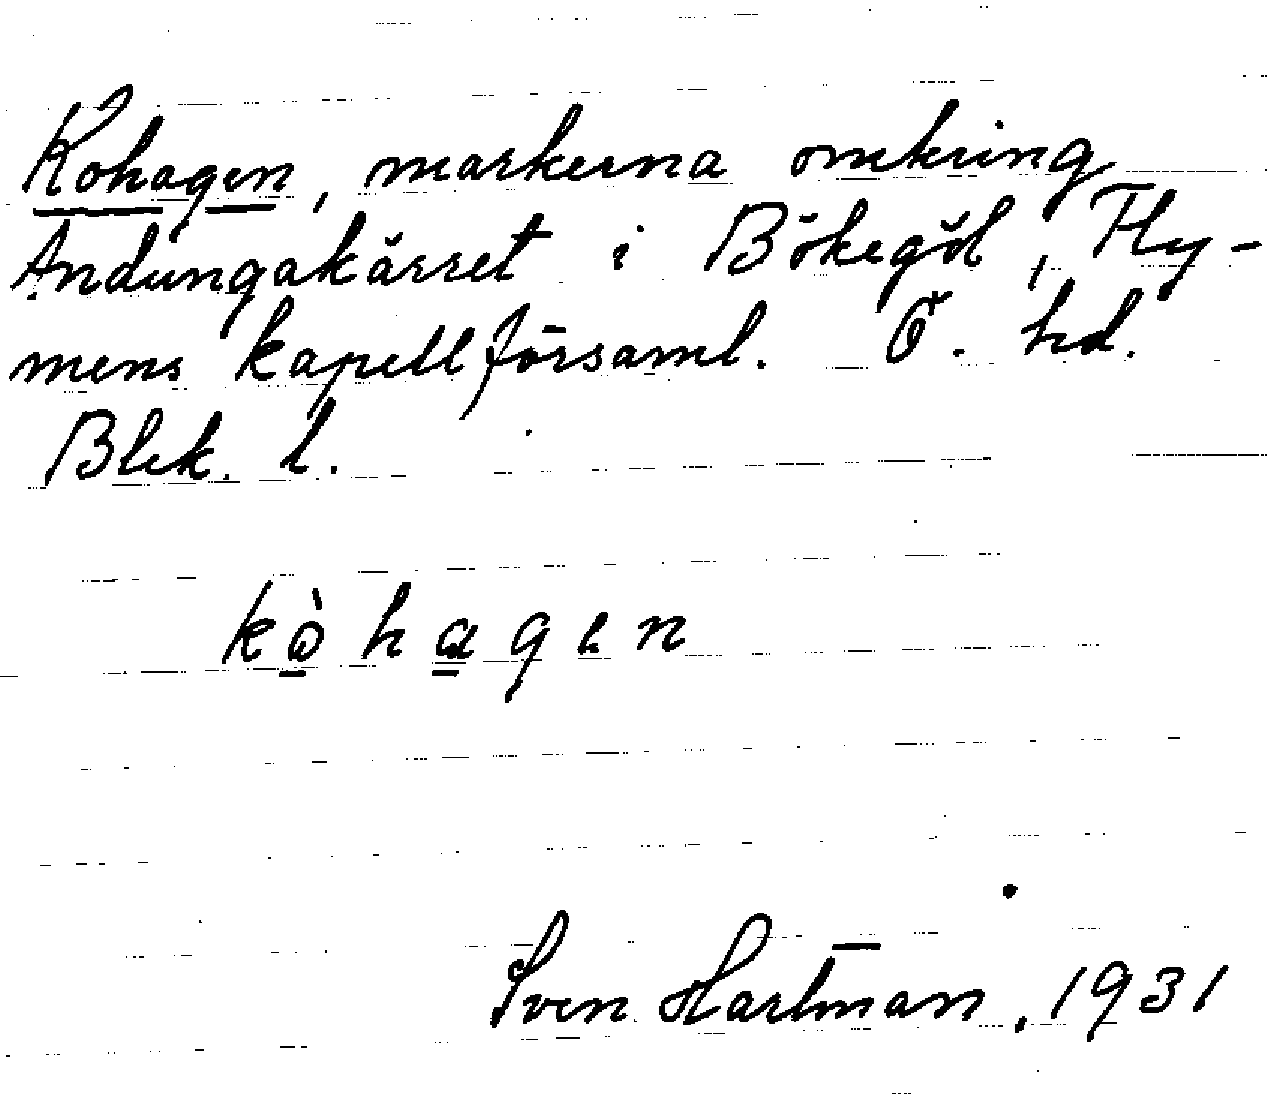 Kohagen, markerna omkring
Andungakärret i Bökegöl, Fly-
mens kapellförsaml. Ö. hd.
Blek. l.
kòhagen
Sven Hartman, 1931